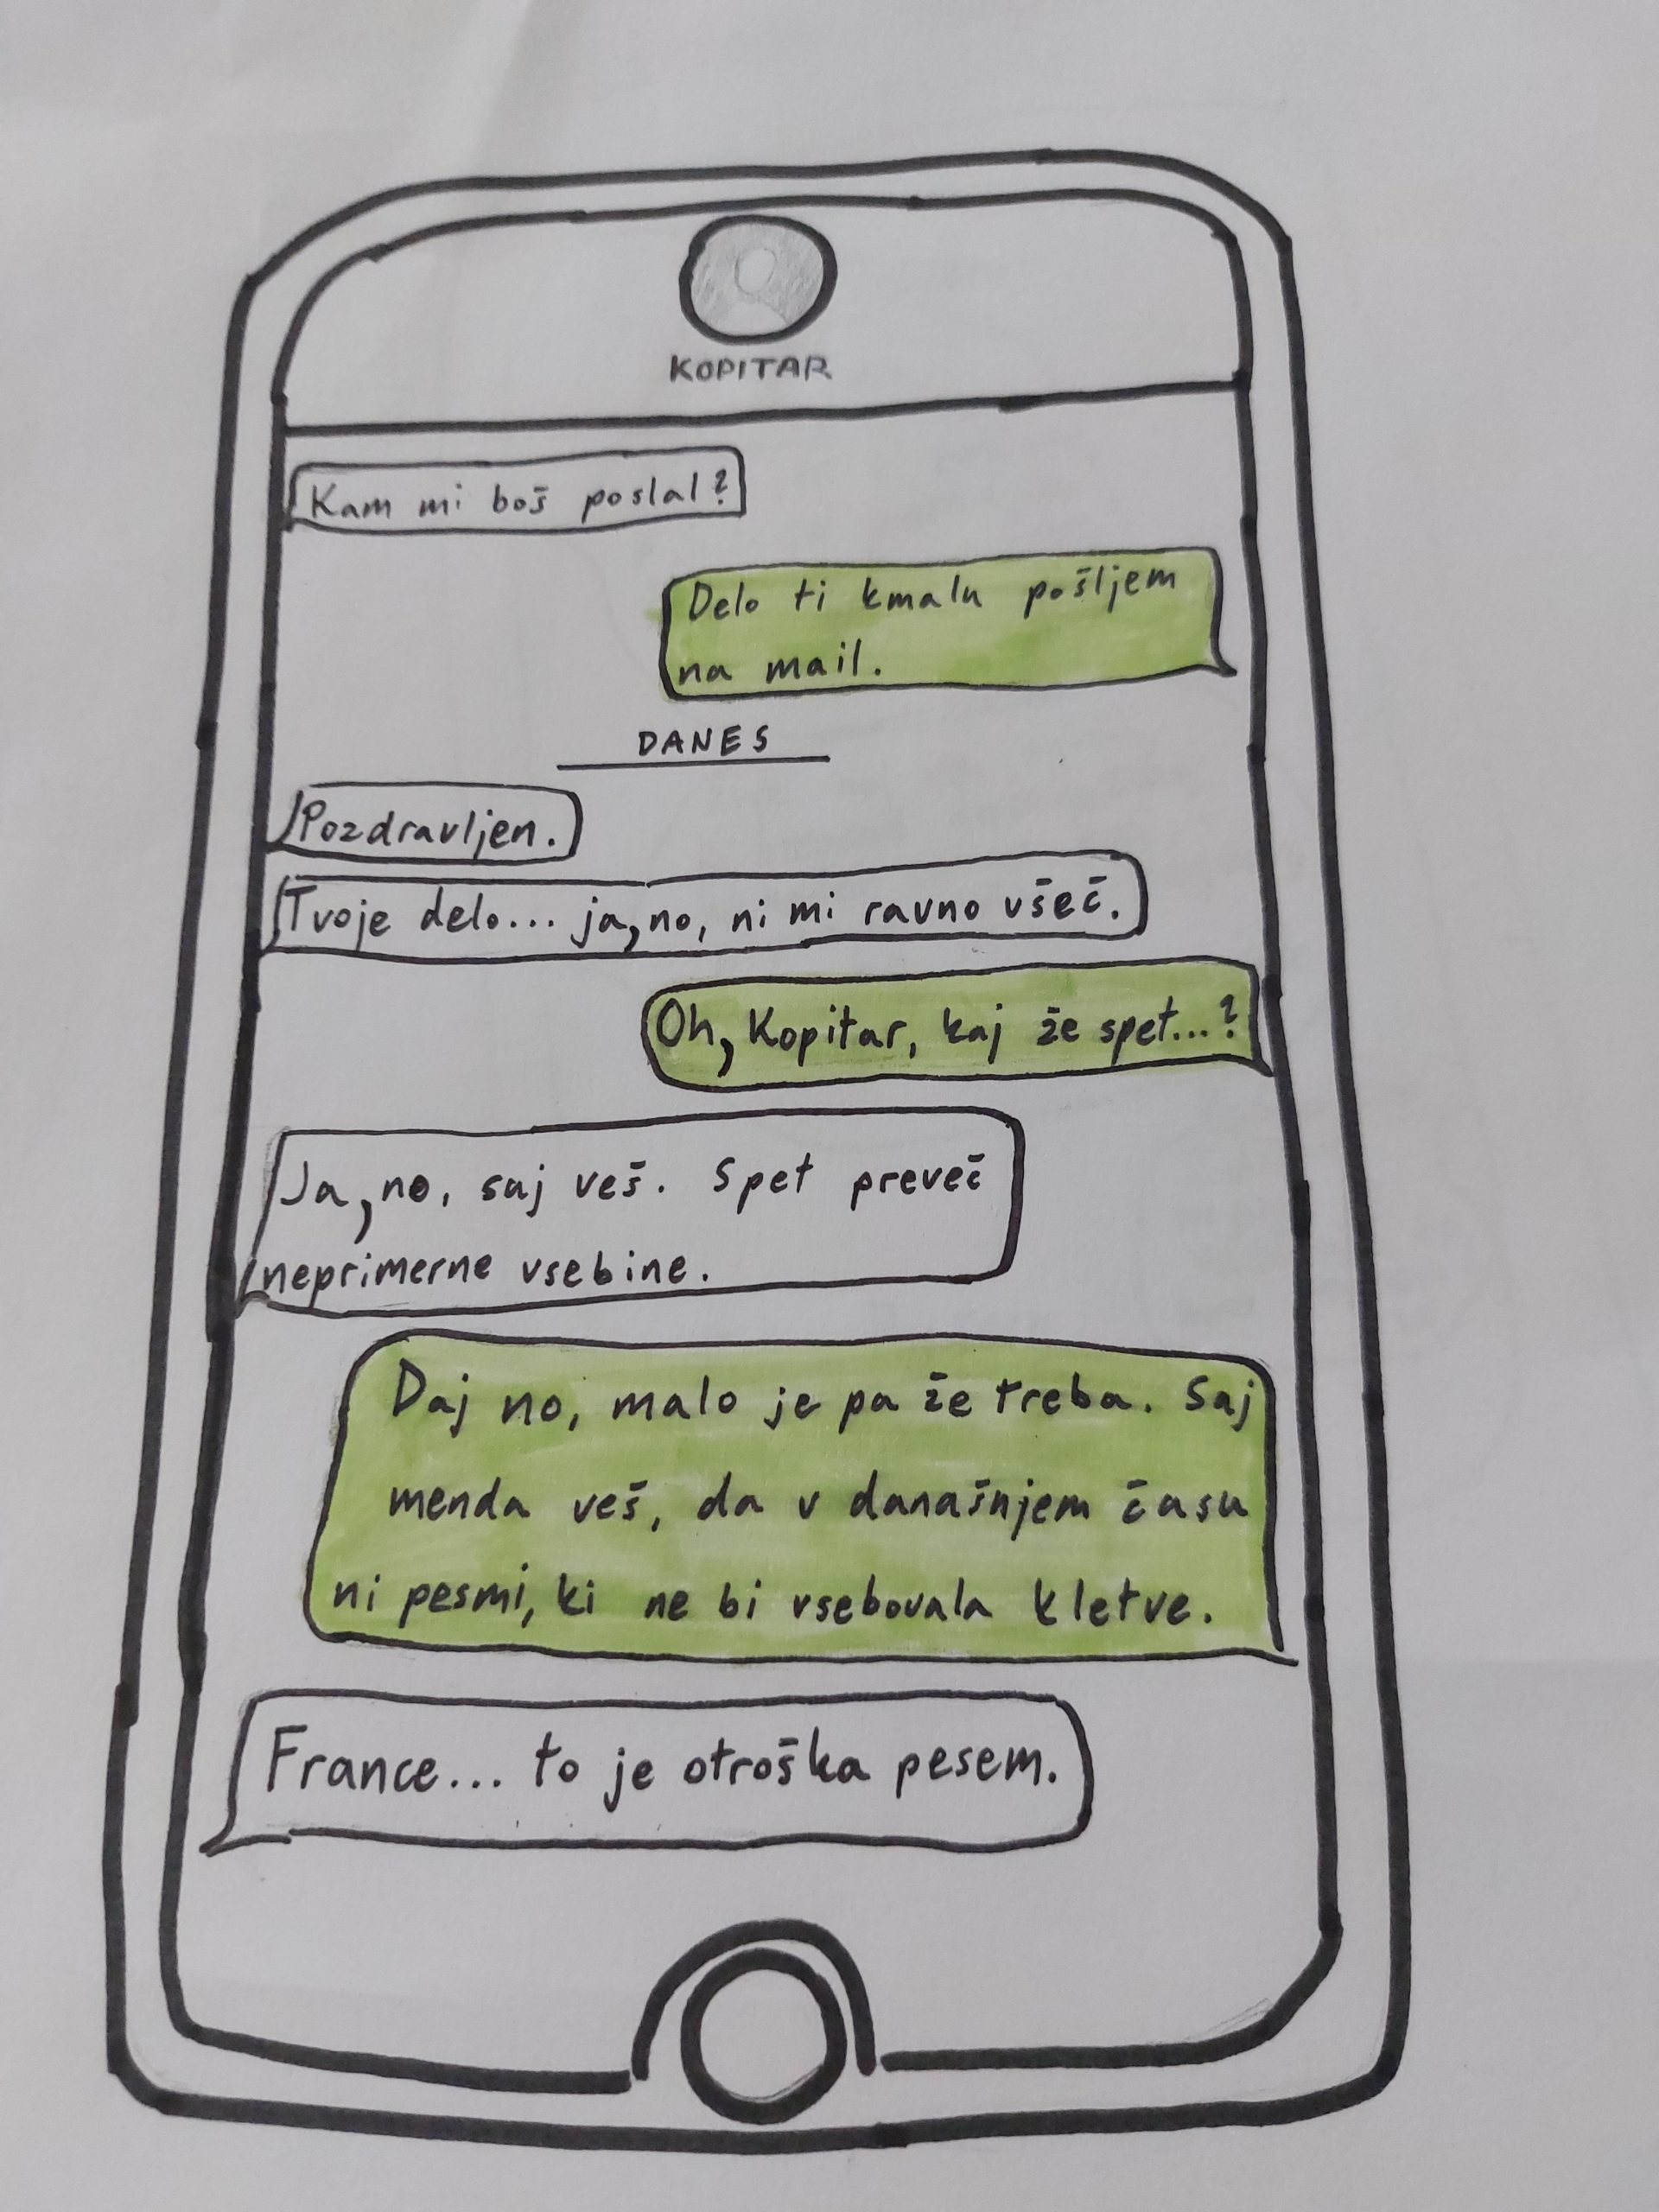 KOPITAR
Kam mi boš poslal?
Delo ti kmalu pošljem
na mail.
DANES
Pozdravljen.
Tvoje delo... ja, no, ni mi ravno všeč.
Oh, Kopitar, kaj že spet...?
Ja, no, saj veš. Spet preveč
neprimerne vsebine.
Daj no, malo je pa že treba. Saj
menda veš, da v današnjem času
ni pesmi, ki ne bi vsebovala kletve.
France... to je otroška pesem.